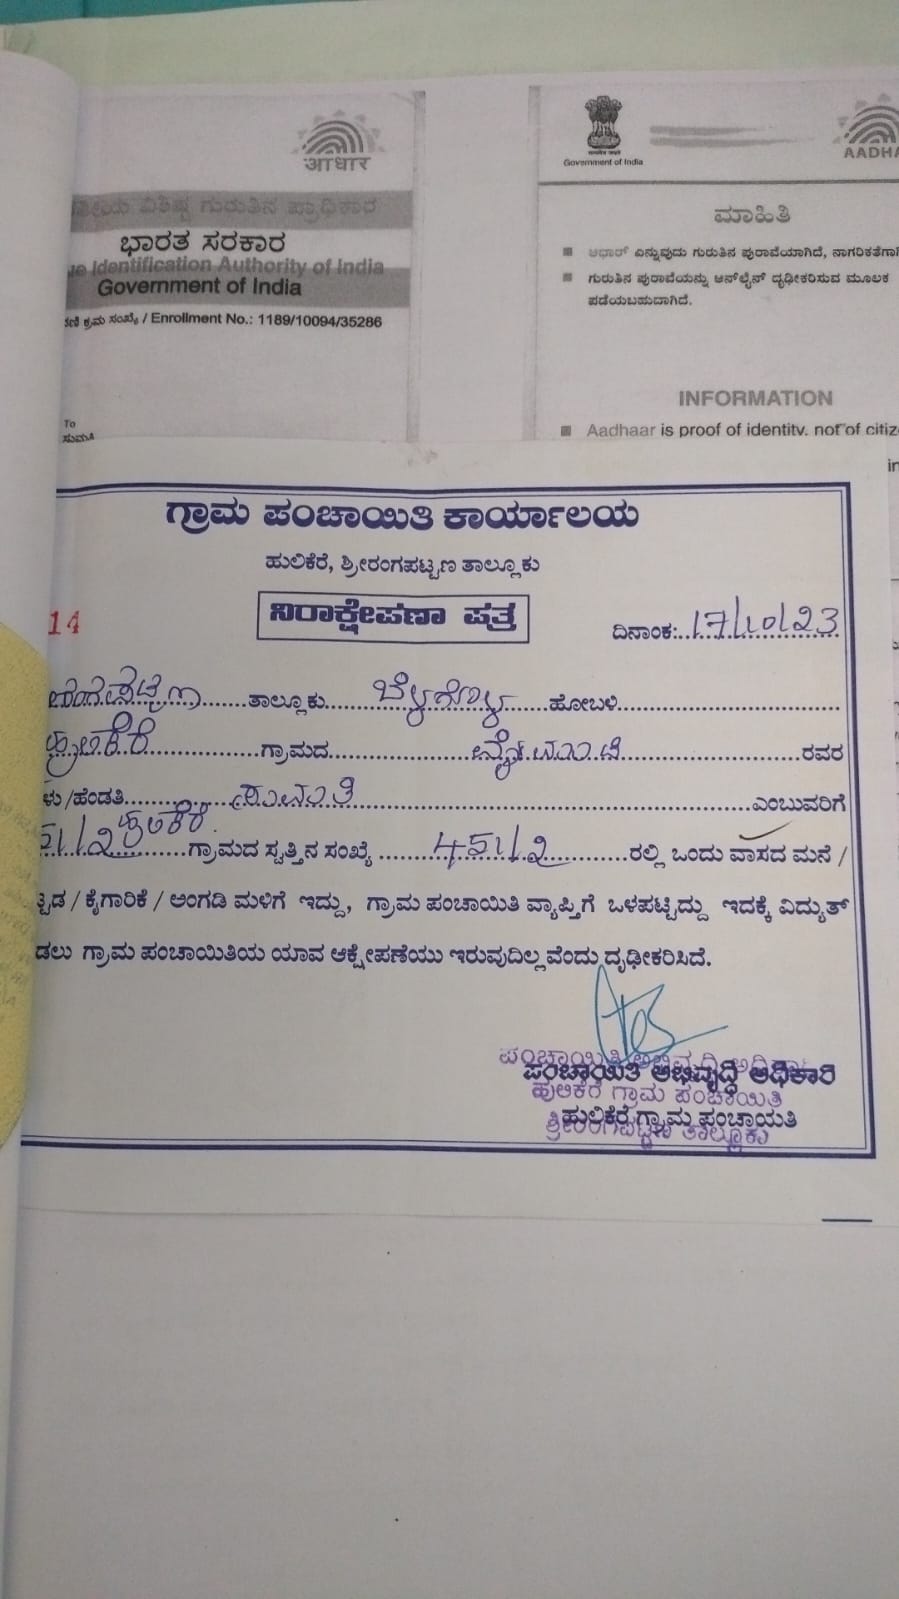 आधार
ಭಾರತ ಸರಕಾರ
Identification Authority of India
Government of India
ಕ್ರಮ ಸಂಖ್ಯೆ / Enrollment No.: 1189/10094/35286
To
ಸುಮತಿ
Government of India
AADHA
ಮಾಹಿತಿ
ಆಧಾರ್ ಎನ್ನುವುದು ಗುರುತಿನ ಪುರಾವೆಯಾಗಿದೆ, ನಾಗರಿಕತೆಗಾ
ಗುರುತಿನ ಪುರಾವೆಯನ್ನು ಆನ್‌ಲೈನ್ ದೃಢೀಕರಿಸುವ ಮೂಲಕ
ಪಡೆಯಬಹುದಾಗಿದೆ.
INFORMATION
Aadhaar is proof of identity, not of citiz
ಗ್ರಾಮ ಪಂಚಾಯಿತಿ ಕಾರ್ಯಾಲಯ
ಹುಲಿಕೆರೆ, ಶ್ರೀರಂಗಪಟ್ಟಣ ತಾಲ್ಲೂಕು
14
ನಿರಾಕ್ಷೇಪಣಾ ಪತ್ರ
ದಿನಾಂಕ:..17/10/23
ತಾಲ್ಲೂಕು ಬೆಳಗೊಳ ಹೋಬಳಿ
ಹುಲಿಕೆರೆ ಗ್ರಾಮದ ರವರ
ಳು /ಹೆಂಡತಿ ಸುಮತಿ ಎಂಬುವರಿಗೆ
ಹುಲಿಕೆರೆ
51/2 ಗ್ರಾಮದ ಸ್ವತ್ತಿನ ಸಂಖ್ಯೆ 451/2 ರಲ್ಲಿ ಒಂದು ವಾಸದ ಮನೆ /
ಟ್ಟಡ / ಕೈಗಾರಿಕೆ / ಅಂಗಡಿ ಮಳಿಗೆ ಇದ್ದು, ಗ್ರಾಮ ಪಂಚಾಯಿತಿ ವ್ಯಾಪ್ತಿಗೆ ಒಳಪಟ್ಟಿದ್ದು ಇದಕ್ಕೆ ವಿದ್ಯುತ್
ಡಲು ಗ್ರಾಮ ಪಂಚಾಯಿತಿಯ ಯಾವ ಆಕ್ಷೇಪಣೆಯು ಇರುವುದಿಲ್ಲವೆಂದು ದೃಢೀಕರಿಸಿದೆ.
ಪಂಚಾಯಿತಿ ಅಭಿವೃದ್ಧಿ ಅಧಿಕಾರಿ
ಹುಲಿಕೆರೆ ಗ್ರಾಮ ಪಂಚಾಯಿತಿ
ಹುಲಿಕೆರೆ ಗ್ರಾಮ ಪಂಚಾಯತಿ
ಶ್ರೀರಂಗಪಟ್ಟಣ ತಾಲ್ಲೂಕು